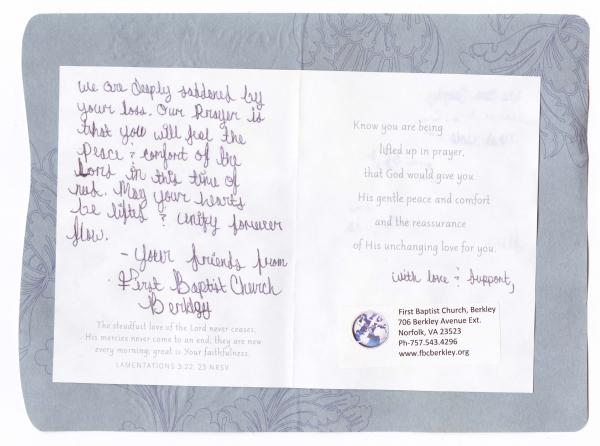 we are deeply saddened by
your loss. Our Prayer is
that you will feel the
peace & comfort of the
Lord in this time of
need. May your hearts
be lifted & unity forever
flow.
- Your friends from
First Baptist Church
Berkley
The steadfast love of the Lord never ceases,
His mercies never come to an end; they are new
every morning; great is Your faithfulness.
LAMENTATIONS 3:22, 23 NRSV
Know you are being
lifted up in prayer,
that God would give you
His gentle peace and comfort
and the reassurance
of His unchanging love for you.
with love & Support,
First Baptist Church, Berkley
706 Berkley Avenue Ext.
Norfolk, VA 23523
Ph-757.543.4296
www.fbcberkley.org